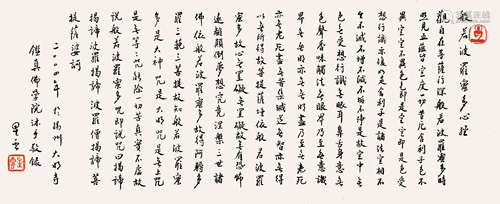 般若波羅蜜多心經
觀自在菩薩行深般若波羅蜜多時
照見五蘊皆空度一切苦厄舍利子色不
異空空不異色色即是空空即是色受
想行識亦復如是舍利子是諸法空相不
生不滅不垢不淨不增不減是故空中無
色無受想行識無眼耳鼻舌身意無
色聲香味觸法無眼界乃至無意識
界無無明亦無無明盡乃至無老死
亦無老死盡無苦集滅道無智亦無得
以無所得故菩提薩埵依般若波羅
蜜多故心無罣礙無罣礙故無有恐怖
遠離顛倒夢想究竟涅槃三世諸
佛依般若波羅蜜多故得阿耨多
羅三藐三菩提故知般若波羅蜜
多是大神咒是大明咒是無上咒
是無等等咒能除一切苦真實不虛故
說般若波羅蜜多咒即說咒曰揭諦
揭諦波羅揭諦波羅僧揭諦菩
提薩婆訶
二〇〇四年於揚州大明寺
鑑真佛學院沐手敬錄
星雲